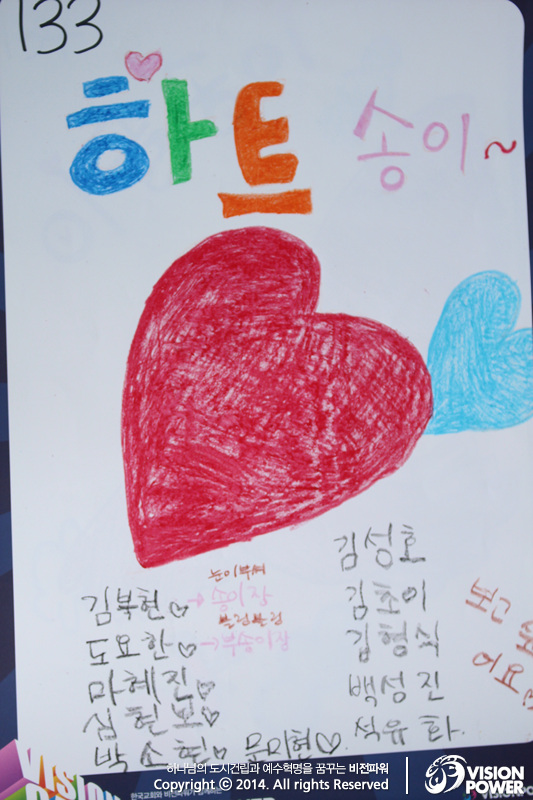 133
하트 송이~
김성호
눈이부셔
김복현♡→송이장 김초이
블링블링
도요한♡→부송이장 김형식
보고
어요
마혜진♡ 백성진
심현보♡
박소현♡ 문미현♡. 석유화.
VISION
하나님의 도시건립과 예수혁명을 꿈꾸는 비전파워
한국교회와
Copyright © 2014. All rights Reserved
VISION POWER